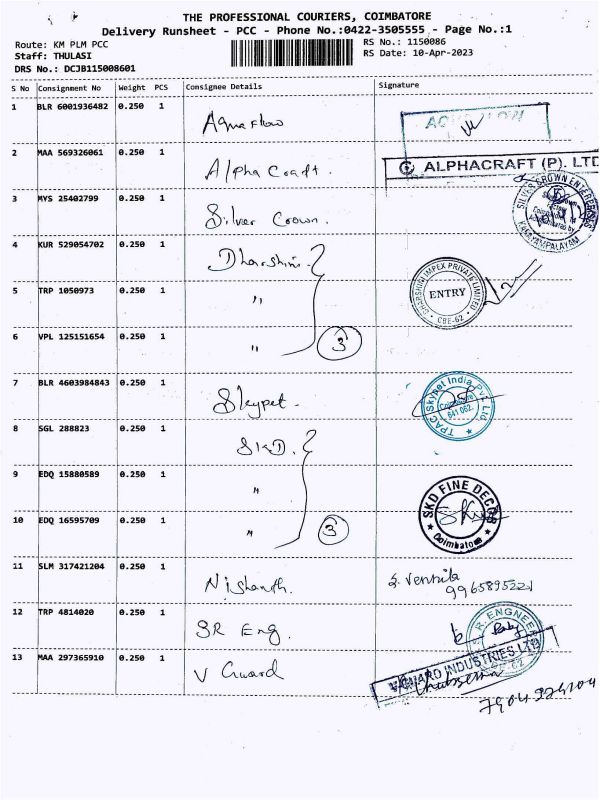 THE PROFESSIONAL COURIERS, COIMBATORE
Delivery Runsheet - PCC - Phone No.:0422-3505555 - Page No.:1
Route: KM PLM PCC
RS No.: 1150086
Staff: THULASI
RS Date: 10-Apr-2023
DRS No.: DCJB115008601
S No Consignment No Weight PCS Consignee Details Signature
1 BLR 6001936482 0.250 1 Aquaflow
2 MAA 569326061 0.250 1 Alpha Craft. ALPHACRAFT (P). LTD
3 MYS 25402799 0.250 1 Silver Crown. SILVER CROWN ENTERPRISES KARAYAMPALAYAM
4 KUR 529054702 0.250 1 Dharshini
DHARSHINI IMPEX PRIVATE LIMITED ENTRY CBE-62
5 TRP 1050973 0.250 1 "
6 VPL 125151654 0.250 1 " 3
7 BLR 4603984843 0.250 1 Skypet. TPAC Skynet India Pvt Ltd Coimbatore 641 062.
8 SGL 288823 0.250 1 SKD.
9 EDQ 15880589 0.250 1 "
10 EDQ 16595709 0.250 1 " 3 SKD FINE DECOR Coimbatore
11 SLM 317421204 0.250 1 Nishanth. S. Vennila
9965895221
12 TRP 4814020 0.250 1 SR Eng.
13 MAA 297365910 0.250 1 V Guard V GUARD INDUSTRIES LTD